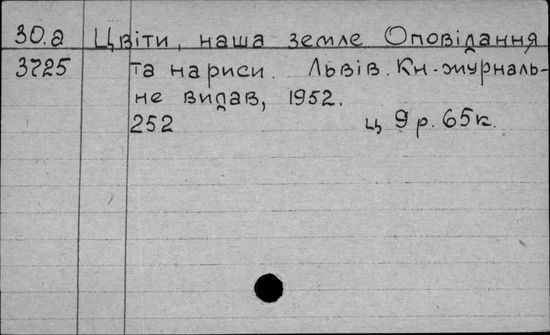 30.а Цвіти, наша земле Оповідання
3725 та нариси. Львів. Кн.-журналь-
не видав, 1952.
252 ц 9 р. 65 к.